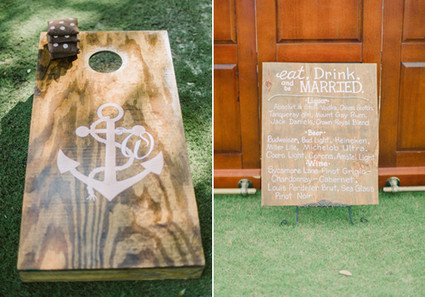 eat, Drink,
and be MARRIED.
Liquor
Absolut & Stoli Vodka, Cruzan Rum,
Tanqueray Gin, Mount Gay Rum,
Jack Daniels, Crown Royal Blend
Beer
Budweiser, Bud Light, Heineken,
Miller Lite, Michelob Ultra,
Coors Light, Corona, Amstel Light
Wine
Sycamore Lane Pinot Grigio-
Chardonnay- Cabernet,
Louis Perdrier Brut, Sea Glass
Pinot Noir